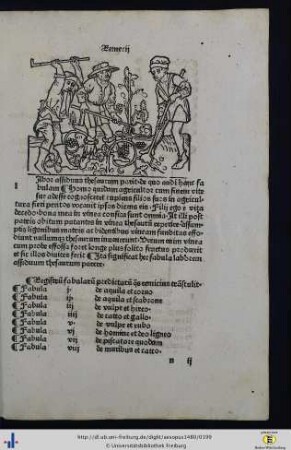 Remicij
Labor assiduus thesaurum parit. de quo audi hanc fa
bulam. Homo quidam agricultor cum finem vite
sue adesse cognosceret cupiens filios suos in agricul
tura fieri peritos vocauit ipsos dicens eis. Filij ego e vita
decedo bona mea in vinea consita sunt omnia. At illi post
patris obitum putantes in vinea thesaurum reperire assum
ptis lignonibus marris ac bidentibus vineam funditus effo
diunt nullumque thesaurum inueniunt. Verum vinea
cum probe effossa foret longe plus solito fructus produxit
et sic illos diuites fecit. Ista significat hec fabula laborem
assiduum thesaurum parere.
Registrum fabularum predictarum
Fabula j. de aquila et coruo
Fabula ij de aquila et scabrone
Fabula iij de vulpe et hirco.
Fabula iiij de catto et gallo.
Fabula v. de vulpe et rubo
Fabula vj de homine et deo ligneo
Fabula vij de piscatore quodam
Fabula viij de muribus et catto.
n ij
http://dl.ub.uni-freiburg.de/diglit/aesopus1480/0199
© Universitätsbibliothek Freiburg